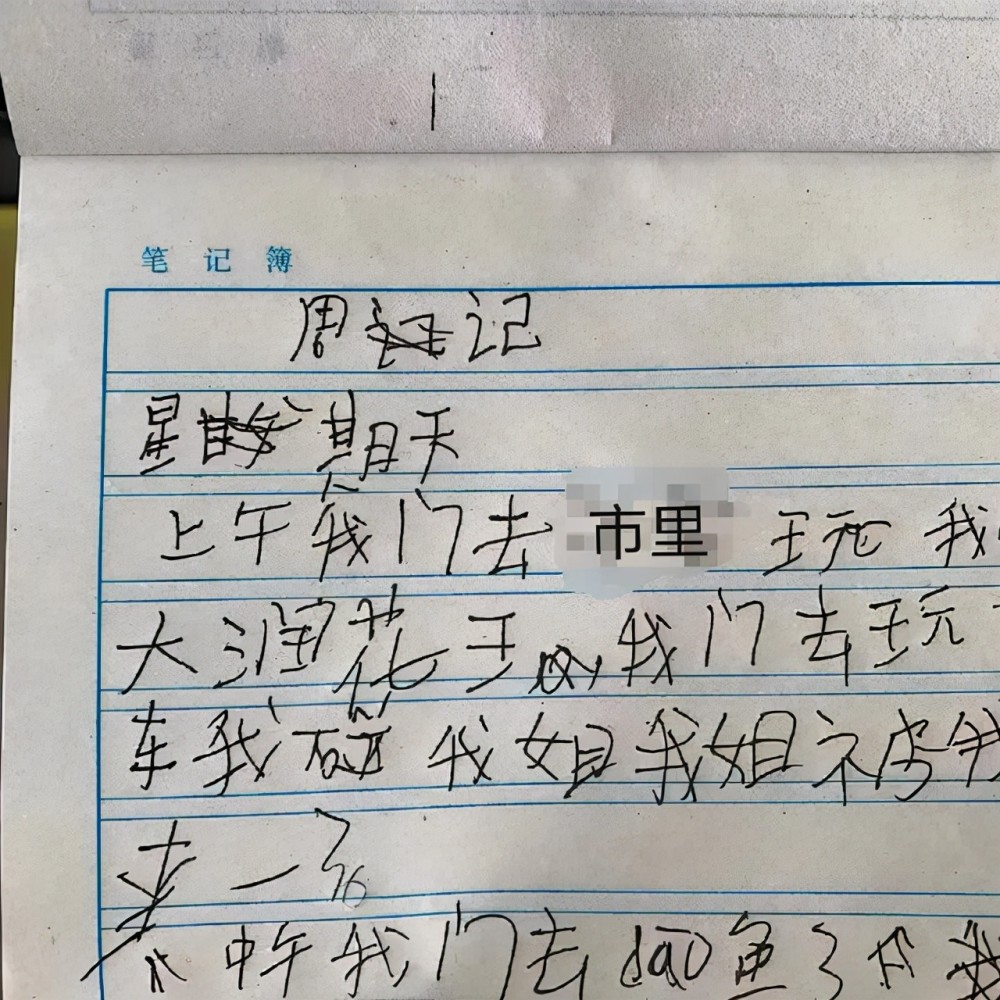 笔记簿
周记
星期天
上午我门去市里王玩 我
大润花王 我门去玩
车我碰我姐我姐被我
来一
中午我门去dao鱼了